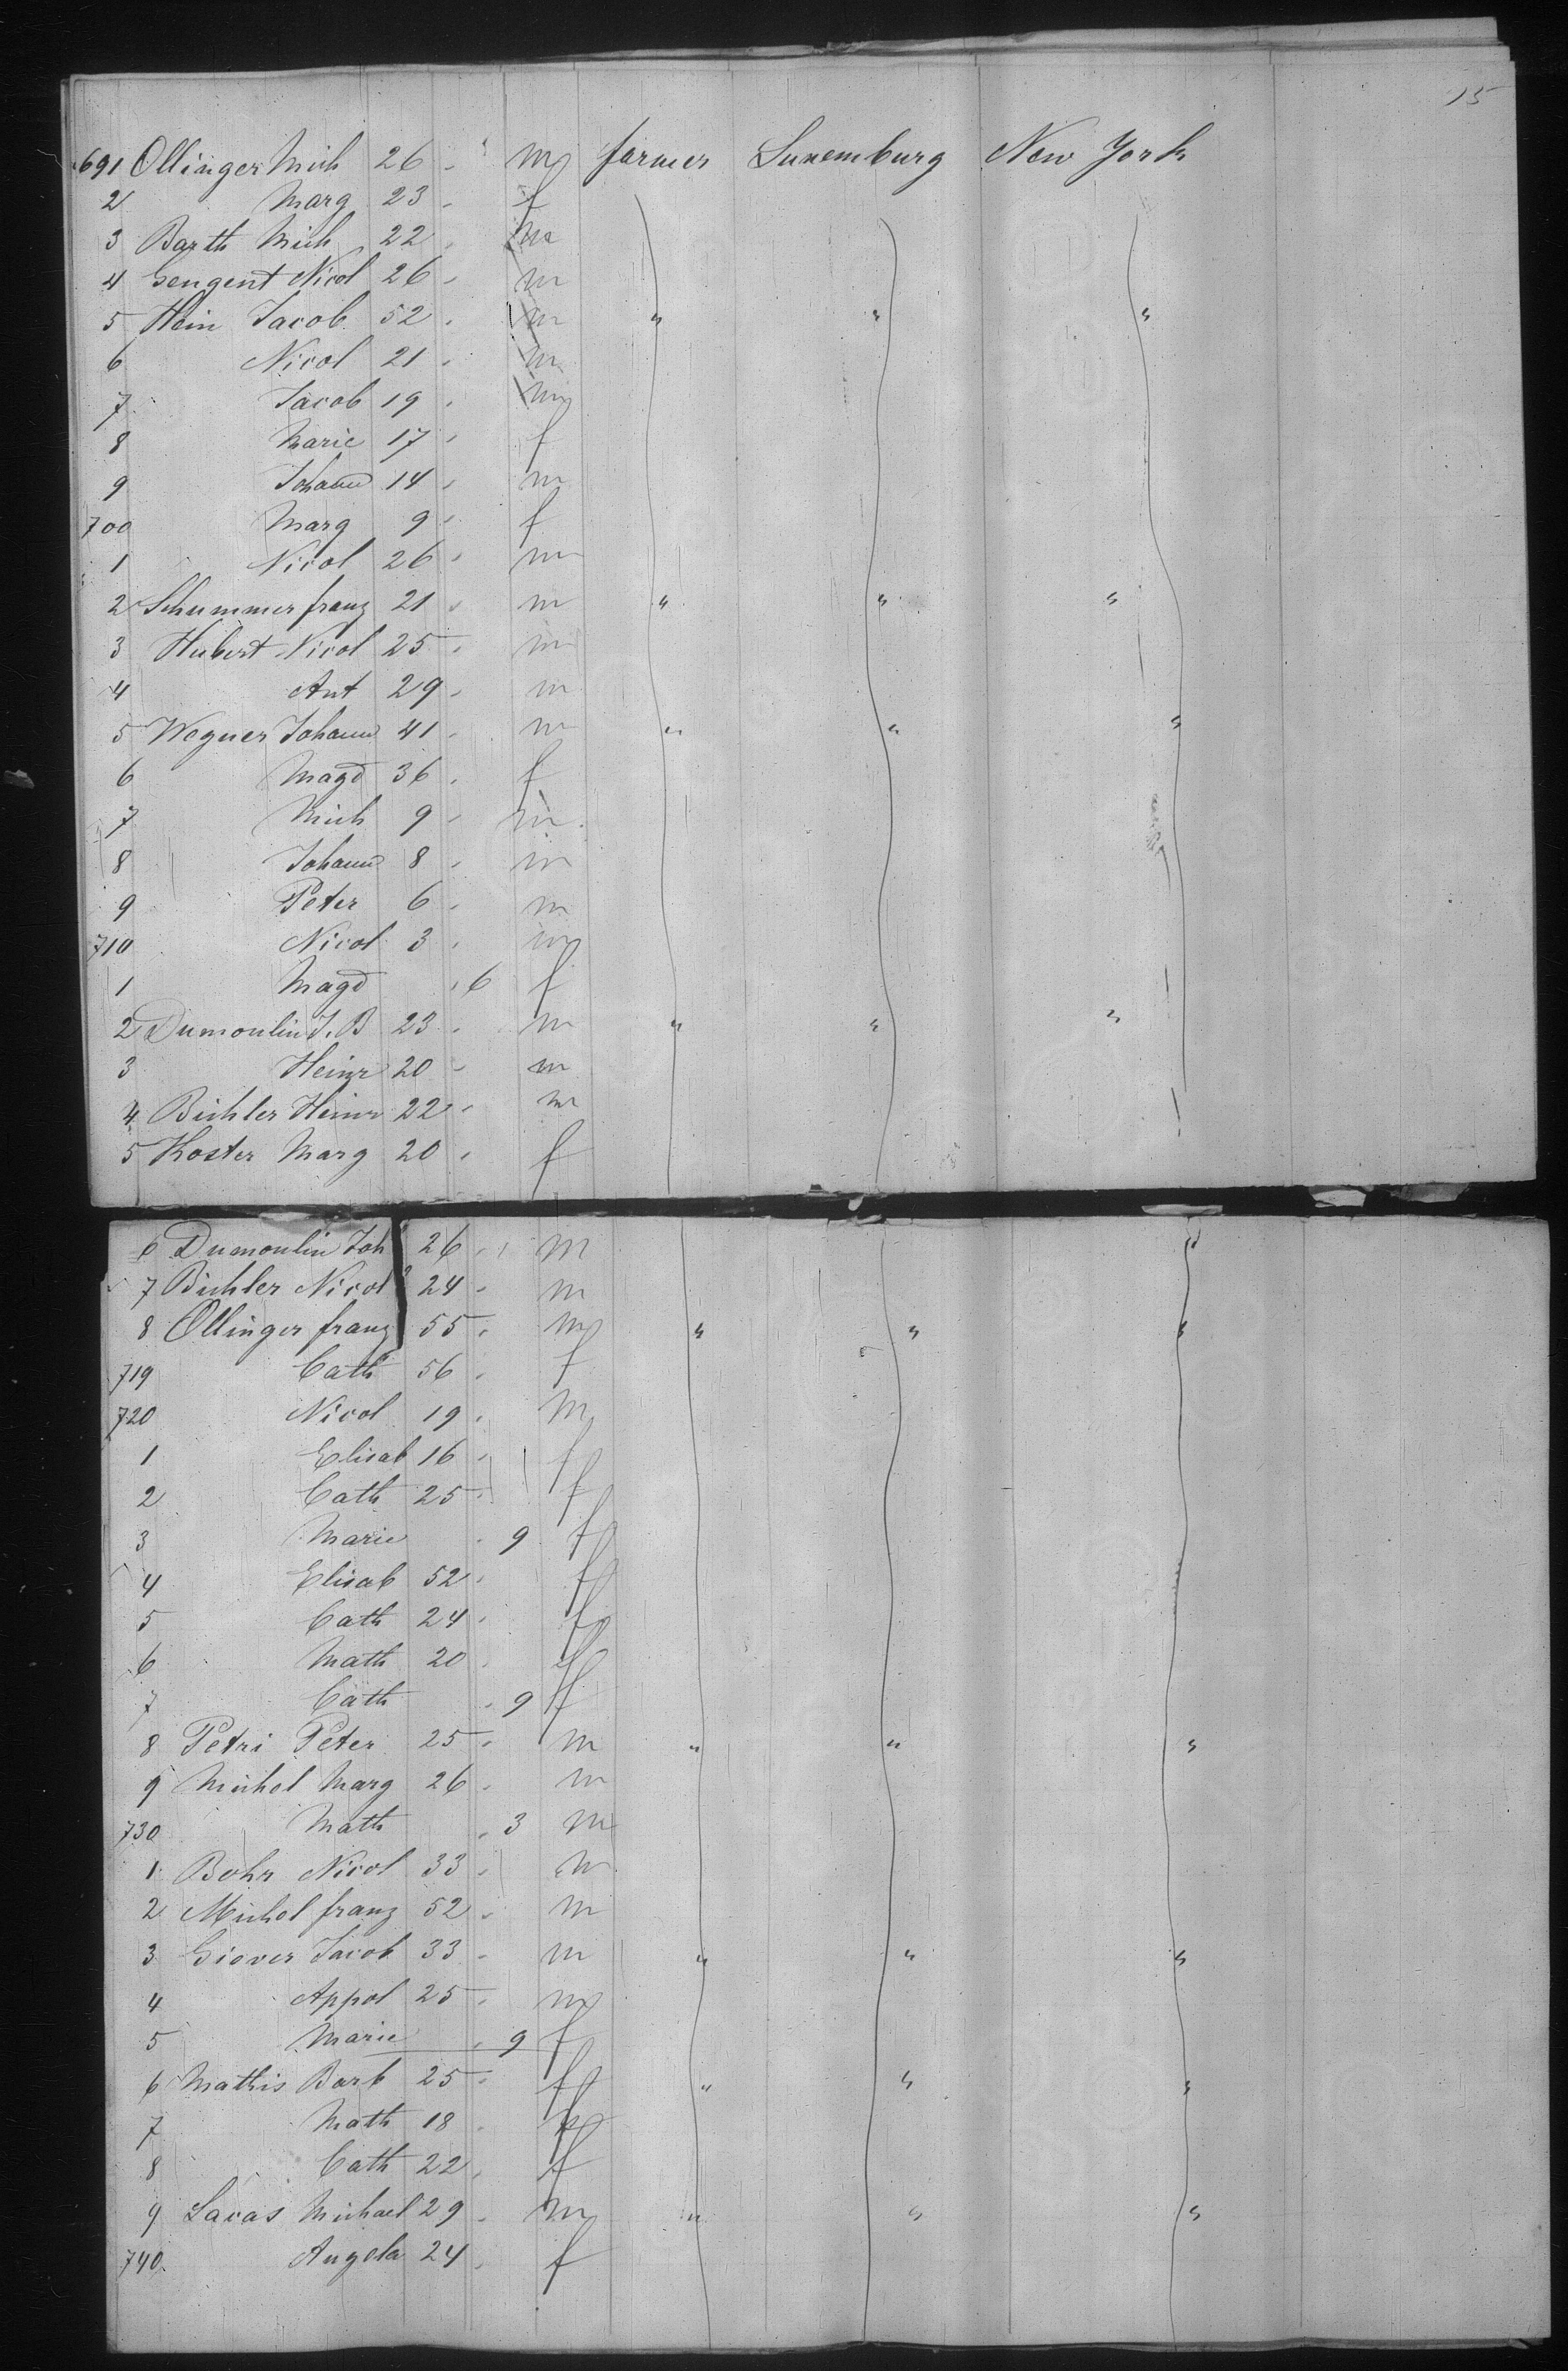 15
691 Ollinger Mich 26 " m farmer Luxemburg New York
2 Marg 23 " f
3 Barth Mich 22 " m
4 Gengent Nicol 26 " m
5 Hein Jacob 52 " m " " "
6 Nicol 21 " m
7 Jacob 19 " m
8 Marie 17 " f
9 Johann 14 " m
700 Marg 9 " f
1 Nicol 26 " m
2 Schummer franz 21 " m " " "
3 Hubert Nicol 25 " m
4 Ant 29 " m
5 Wagner Johann 41 " m " " "
6 Magd 36 " f
7 Mich 9 " m
8 Johann 8 " m
9 Peter 6 " m
710 Nicol 3 " m
1 Magd " 6 f
2 Dumoulin J. B 23 " m " " "
3 Heinr 20 " m
4 Bichler Heinr 22 " m
5 Koster Marg 20 " f
6 Dumoulin Joh 26 " m
7 Bichler Nicol 24 " m
8 Ollinger franz 55 " m " " "
719 Cath 56 " f
720 Nicol 19 " m
1 Elisab 16 " f
2 Cath 25 " f
3 Marie " 9 f
4 Elisab 52 " f
5 Cath 24 " f
6 Math 20 " f
7 Cath " 9 f
8 Petri Peter 25 " m " " "
9 Michel Marg 26 " m
730 Math " 3 m
1 Bohr Nicol 33 " m
2 Michel franz 52 " m
3 Giover Jacob 33 " m " " "
4 Appol 25 " m
5 Marie " 9 f
6 Mathis Barb 25 " f " " "
7 Math 18 "
8 Cath 22 " f
9 Lacas Michael 29 " m " " "
740 Angela 24 " f